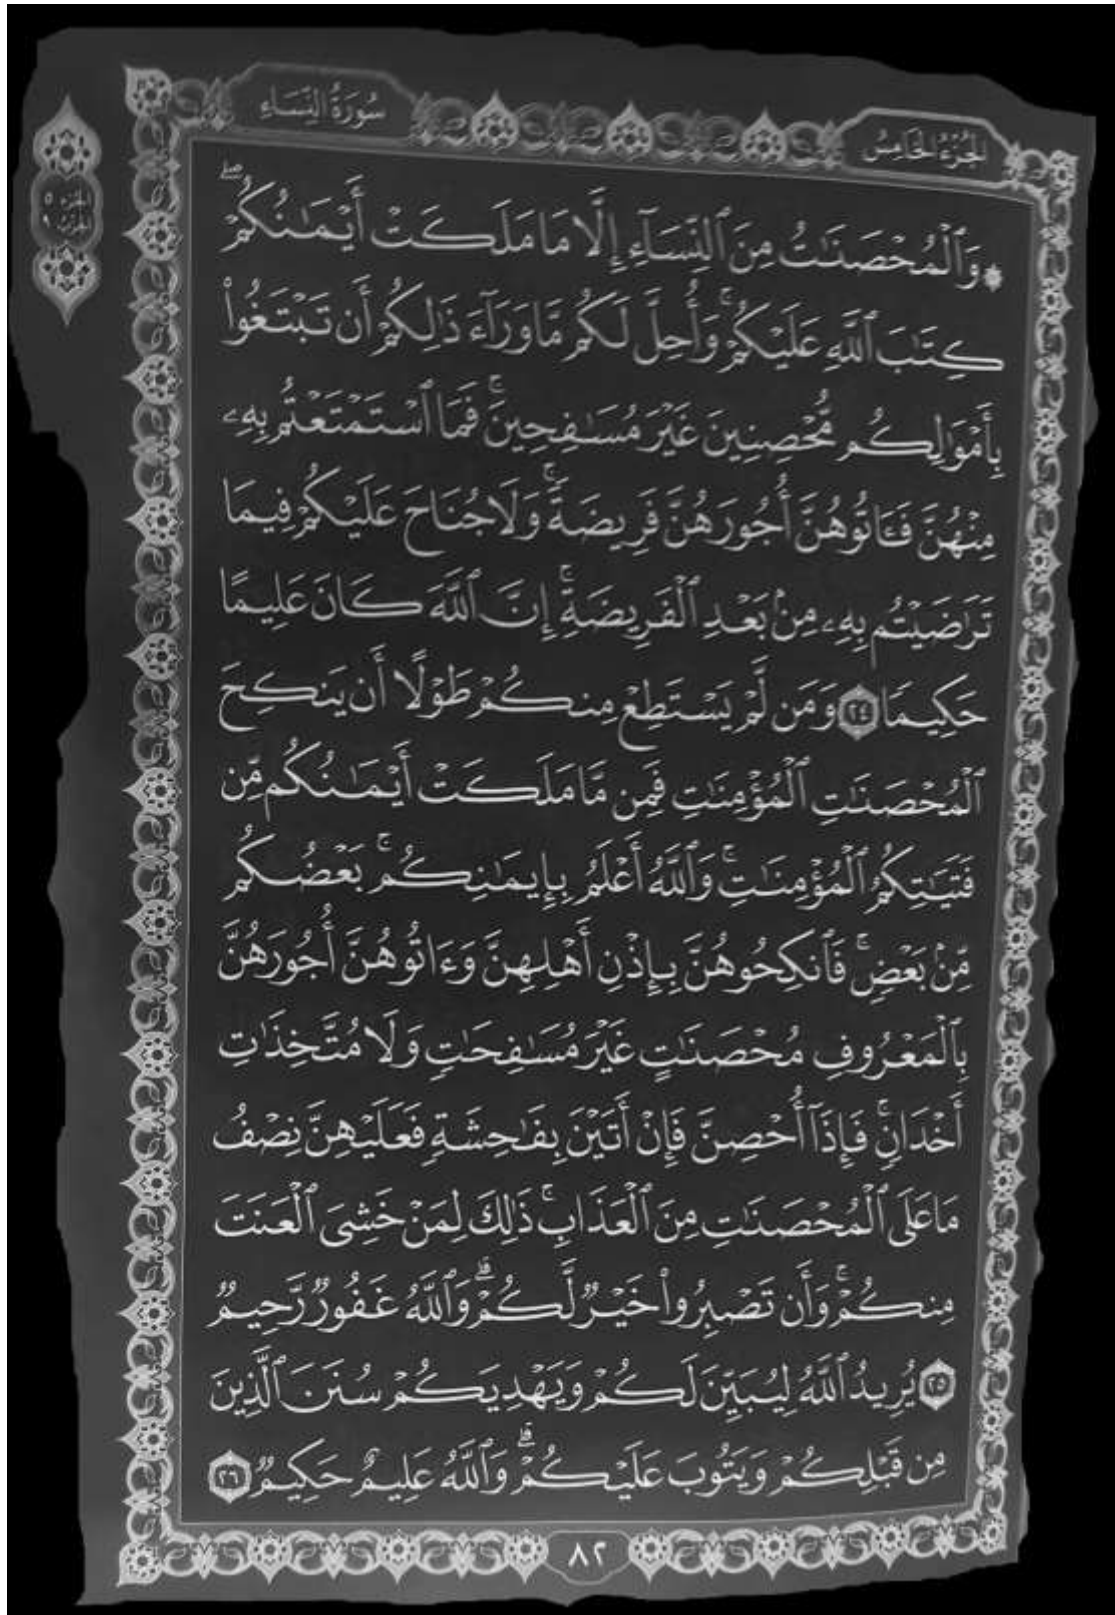 الجزء الخامس
سورة النساء
الجزء ٥
الحزب ٩
۞ وَٱلْمُحْصَنَـٰتُ مِنَ ٱلنِّسَآءِ إِلَّا مَا مَلَكَتْ أَيْمَـٰنُكُمْ ۖ
كِتَـٰبَ ٱللَّهِ عَلَيْكُمْ ۚ وَأُحِلَّ لَكُم مَّا وَرَآءَ ذَٰلِكُمْ أَن تَبْتَغُوا۟
بِأَمْوَٰلِكُم مُّحْصِنِينَ غَيْرَ مُسَـٰفِحِينَ ۚ فَمَا ٱسْتَمْتَعْتُم بِهِۦ
مِنْهُنَّ فَـَٔاتُوهُنَّ أُجُورَهُنَّ فَرِيضَةً ۚ وَلَا جُنَاحَ عَلَيْكُمْ فِيمَا
تَرَٰضَيْتُم بِهِۦ مِنۢ بَعْدِ ٱلْفَرِيضَةِ ۚ إِنَّ ٱللَّهَ كَانَ عَلِيمًا
حَكِيمًا ٢٤ وَمَن لَّمْ يَسْتَطِعْ مِنكُمْ طَوْلًا أَن يَنكِحَ
ٱلْمُحْصَنَـٰتِ ٱلْمُؤْمِنَـٰتِ فَمِن مَّا مَلَكَتْ أَيْمَـٰنُكُم مِّن
فَتَيَـٰتِكُمُ ٱلْمُؤْمِنَـٰتِ ۚ وَٱللَّهُ أَعْلَمُ بِإِيمَـٰنِكُم ۚ بَعْضُكُم
مِّنۢ بَعْضٍ ۚ فَٱنكِحُوهُنَّ بِإِذْنِ أَهْلِهِنَّ وَءَاتُوهُنَّ أُجُورَهُنَّ
بِٱلْمَعْرُوفِ مُحْصَنَـٰتٍ غَيْرَ مُسَـٰفِحَـٰتٍ وَلَا مُتَّخِذَٰتِ
أَخْدَانٍ ۚ فَإِذَآ أُحْصِنَّ فَإِنْ أَتَيْنَ بِفَـٰحِشَةٍ فَعَلَيْهِنَّ نِصْفُ
مَا عَلَى ٱلْمُحْصَنَـٰتِ مِنَ ٱلْعَذَابِ ۚ ذَٰلِكَ لِمَنْ خَشِىَ ٱلْعَنَتَ
مِنكُمْ ۚ وَأَن تَصْبِرُوا۟ خَيْرٌ لَّكُمْ ۗ وَٱللَّهُ غَفُورٌ رَّحِيمٌ
٢٥ يُرِيدُ ٱللَّهُ لِيُبَيِّنَ لَكُمْ وَيَهْدِيَكُمْ سُنَنَ ٱلَّذِينَ
مِن قَبْلِكُمْ وَيَتُوبَ عَلَيْكُمْ ۗ وَٱللَّهُ عَلِيمٌ حَكِيمٌ ٢٦
٨٢